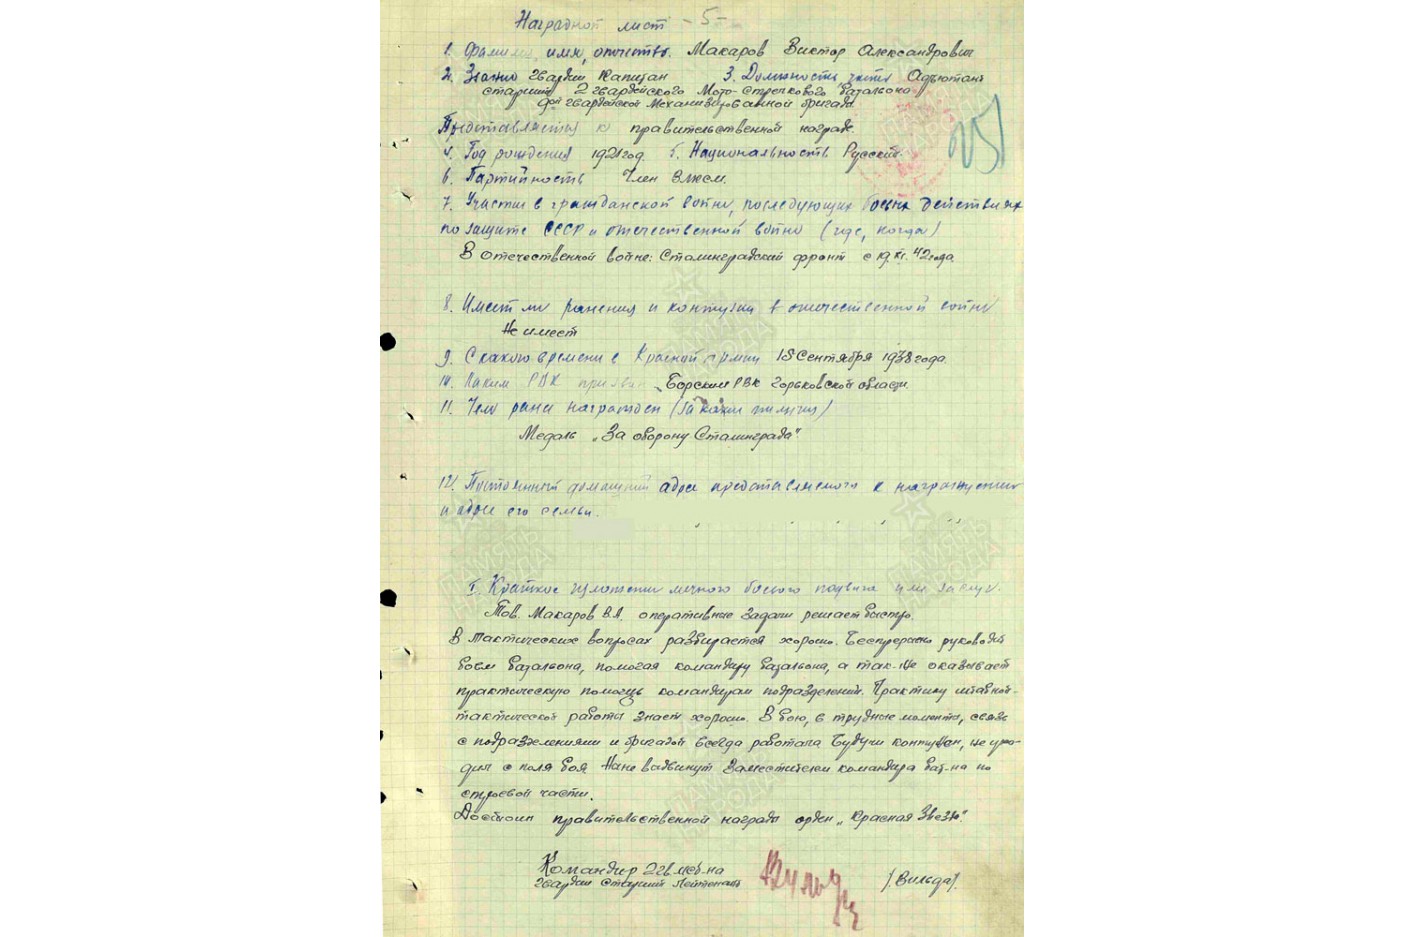 Наградной лист -5-
1. Фамилия, имя, отчество. Макаров Виктор Александрович
2. Звание Гвардии Капитан 3. Должность, часть Адъютант
старший 2 гвардейского Мото-стрелкового батальона
гвардейской Механизированной бригады.
Представляется к правительственной награде.
4. Год рождения 1921 год. 5. Национальность Русский.
6. Партийность Член ВЛКСМ.
7. Участие в гражданской войне, последующих боевых действиях
по защите СССР и отечественной войне (где, когда)
В отечественной войне: Сталинградский фронт с 19.XI.42 года.
8. Имеет ли ранения и контузии в отечественной войне
Не имеет
9. С какого времени в Красной армии 15 Сентября 1938 года.
10. Каким РВК призван Борским РВК Горьковской области.
11. Чем ранее награжден (за какие отличия)
Медаль „За оборону Сталинграда"
12. Постоянный домашний адрес представляемого к награждению
и адрес его семьи.
I. Краткое изложение личного боевого подвига или заслуг.
Тов. Макаров В.А. оперативные задачи решает быстро.
В тактических вопросах разбирается хорошо. Беспрерывно руководил
боем батальона, помогая командиру батальона, а так-же оказывает
практическую помощь командирам подразделений. Практику штабной-
тактической работы знает хорошо. В бою, в трудные моменты, связь
с подразделениями и бригадой всегда работала. Будучи контужен, не ухо-
дил с поля боя. Ныне выдвинут Заместителем командира бат-на по
строевой части.
Достоин правительственной награды орден „Красная Звезда".
Командир 2 гв. мсб-на
гвардии Старший Лейтенант /.Вильда/.
ПАМЯТЬ
НАРОДА